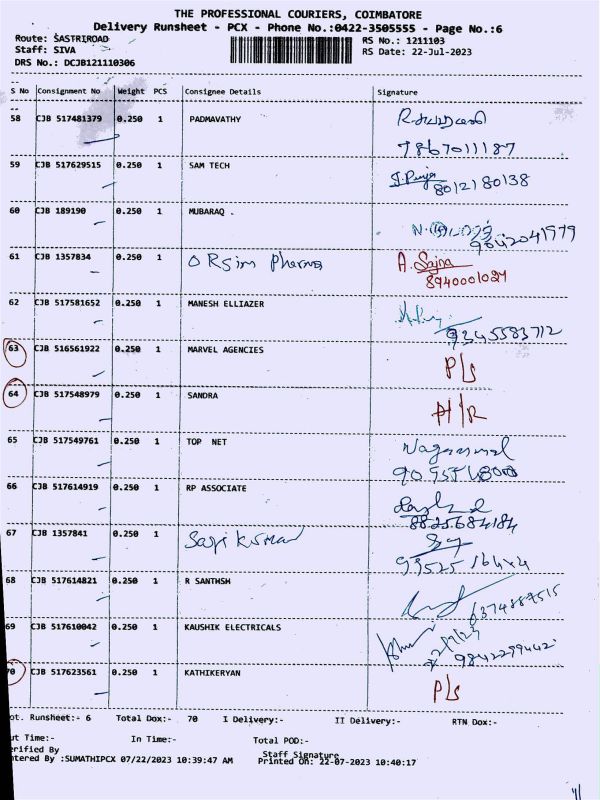 THE PROFESSIONAL COURIERS, COIMBATORE
Delivery Runsheet - PCX - Phone No.:0422-3505555 - Page No.:6
Route: SASTRIROAD
RS No.: 1211103
Staff: SIVA
RS Date: 22-Jul-2023
DRS No.: DCJB121110306
S No Consignment No Weight PCS Consignee Details Signature
58 CJB 517481379 0.250 1 PADMAVATHY
7867011187
59 CJB 517629515 0.250 1 SAM TECH
8012180138
60 CJB 189190 0.250 1 MUBARAQ .
9042041979
61 CJB 1357834 0.250 1 ORsim Pharma A. Sajna
8940001027
62 CJB 517581652 0.250 1 MANESH ELLIAZER
9345583712
63 CJB 516561922 0.250 1 MARVEL AGENCIES P/s
64 CJB 517548979 0.250 1 SANDRA
65 CJB 517549761 0.250 1 TOP NET Nagammal
66 CJB 517614919 0.250 1 RP ASSOCIATE
8825684184
67 CJB 1357841 0.250 1 Saji Kumar
68 CJB 517614821 0.250 1 R SANTHSH
6374887515
69 CJB 517610042 0.250 1 KAUSHIK ELECTRICALS
9842299442
70 CJB 517623561 0.250 1 KATHIKERYAN P/s
ot. Runsheet:- 6 Total Dox:- 70 I Delivery:- II Delivery:- RTN Dox:-
ut Time:- In Time:- Total POD:-
erified By Staff Signature
ntered By :SUMATHIPCX 07/22/2023 10:39:47 AM Printed On: 22-07-2023 10:40:17